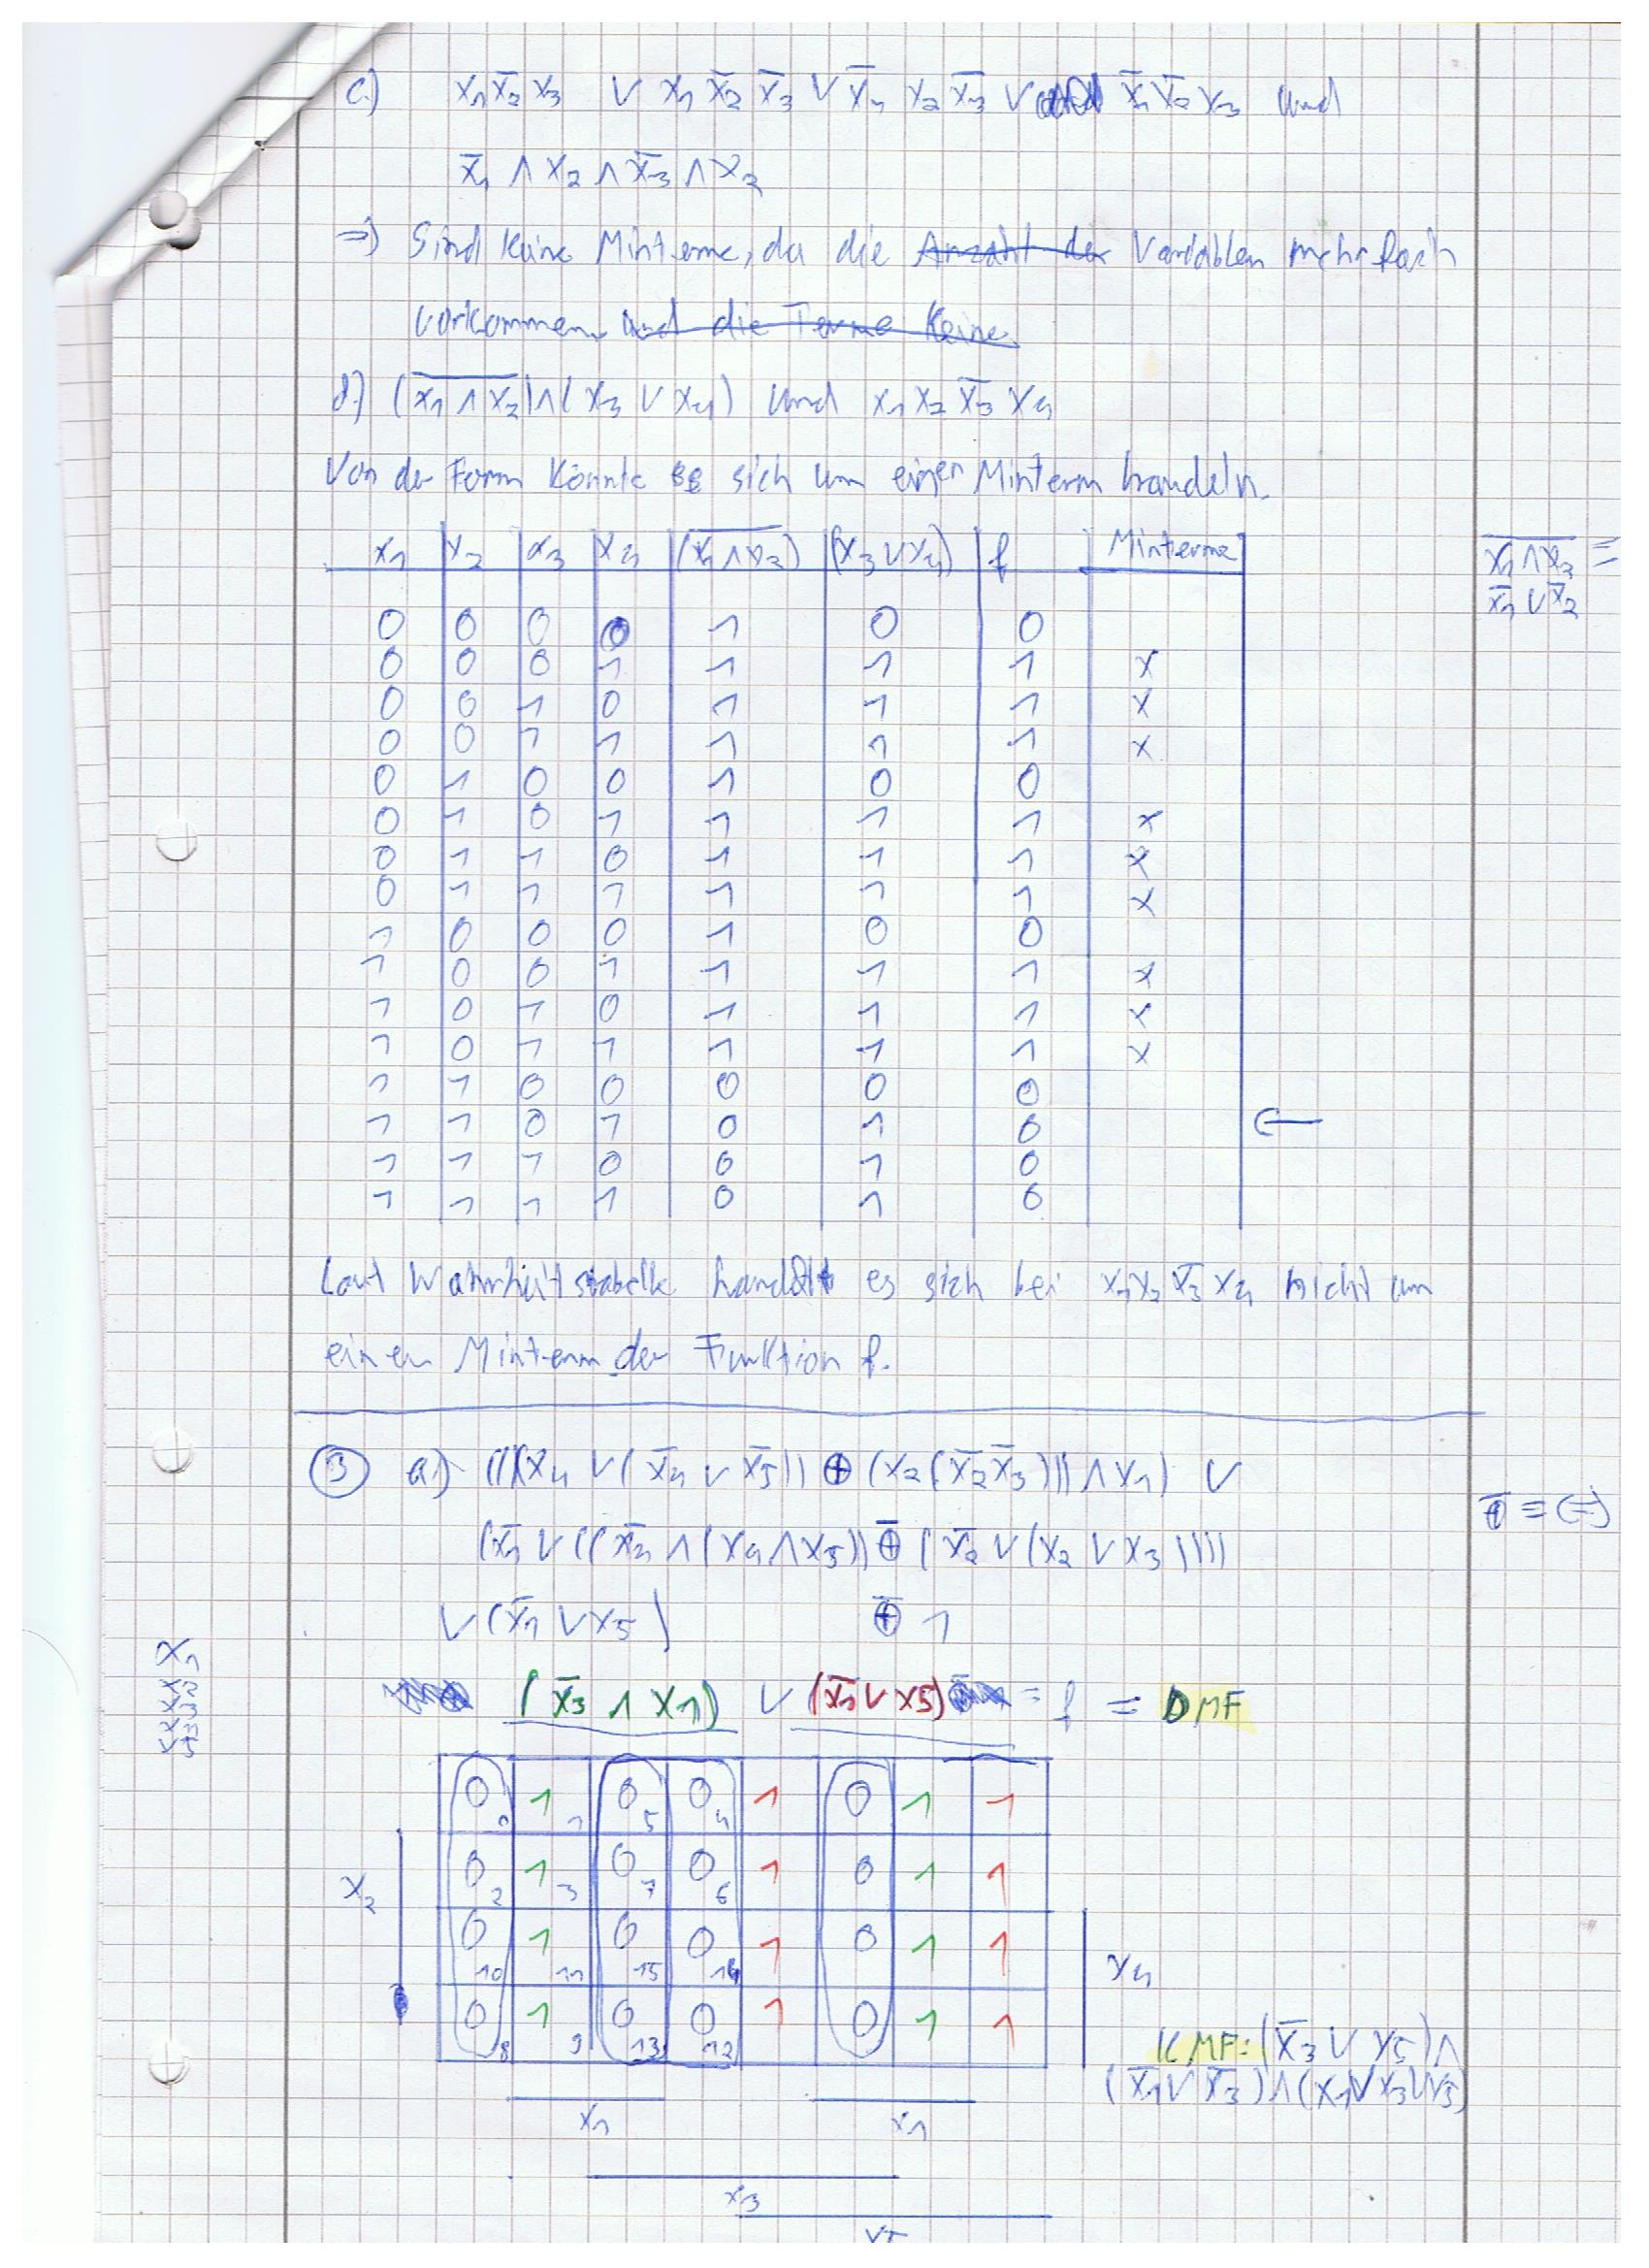 c.) x₁x̄₂x₃ ∨ x₁x̄₂x̄₃ ∨ x̄₁x₂x̄₃ ∨ x̄₁x̄₂x₃ und
x̄₁ ∧ x₂ ∧ x̄₃ ∧ x₂
⇒) Sind keine Minterme, da die Anzahl der Variablen mehrfach
vorkommen und die Terme keine
d.) (x̅₁̅ ̅∧̅ ̅x̅₂̅) ∧ (x₃ ∨ x₄) und x₁x₂x̄₃x₄
Von der Form könnte es sich um einen Minterm handeln.
x₁ x₂ x₃ x₄ (x̅₁̅ ̅∧̅ ̅x̅₂̅) (x₃ ∨ x₄) f Minterme
x̅₁̅ ̅∧̅ ̅x̅₂̅ =
x̄₁ ∨ x̄₂
0 0 0 0 1 0 0
0 0 0 1 1 1 1 x
0 0 1 0 1 1 1 x
0 0 1 1 1 1 1 x
0 1 0 0 1 0 0
0 1 0 1 1 1 1 x
0 1 1 0 1 1 1 x
0 1 1 1 1 1 1 x
1 0 0 0 1 0 0
1 0 0 1 1 1 1 x
1 0 1 0 1 1 1 x
1 0 1 1 1 1 1 x
1 1 0 0 0 0 0
1 1 0 1 0 1 0 ←
1 1 1 0 0 1 0
1 1 1 1 0 1 0
Laut Wahrheitstabelle handelt es sich bei x₁x₂x̄₃x₄ nicht um
einen Minterm der Funktion f.
③ a.) ((((x₄ ∨ (x̄₄ ∨ x̄₅)) ⊕ (x₂(x̄₂x̄₃))) ∧ x₁) ∨
(x̄₁ ∨ ((x̄₄ ∧ (x₄ ∧ x₅)) ⊕̄ (x̄₂ ∨ (x₂ ∨ x₃))))
⊕̄ = ⇔
∨ (x̄₁ ∨ x₅) ⊕̄ 1
(x̄₃ ∧ x₁) ∨ (x̄₁ ∨ x₅) = f = DMF
0 0 1 1 0 5 0 4 1 0 1 1
x₂
0 2 1 3 0 7 0 6 1 0 1 1
0 10 1 11 0 15 0 14 1 0 1 1
x₄
0 8 1 9 0 13 0 12 1 0 1 1
KMF: (x̄₃ ∨ x₅) ∧
(x̄₁ ∨ x̄₃) ∧ (x₁ ∨ x₃ ∨ x₅)
x₁ x₁
x₃
x₅